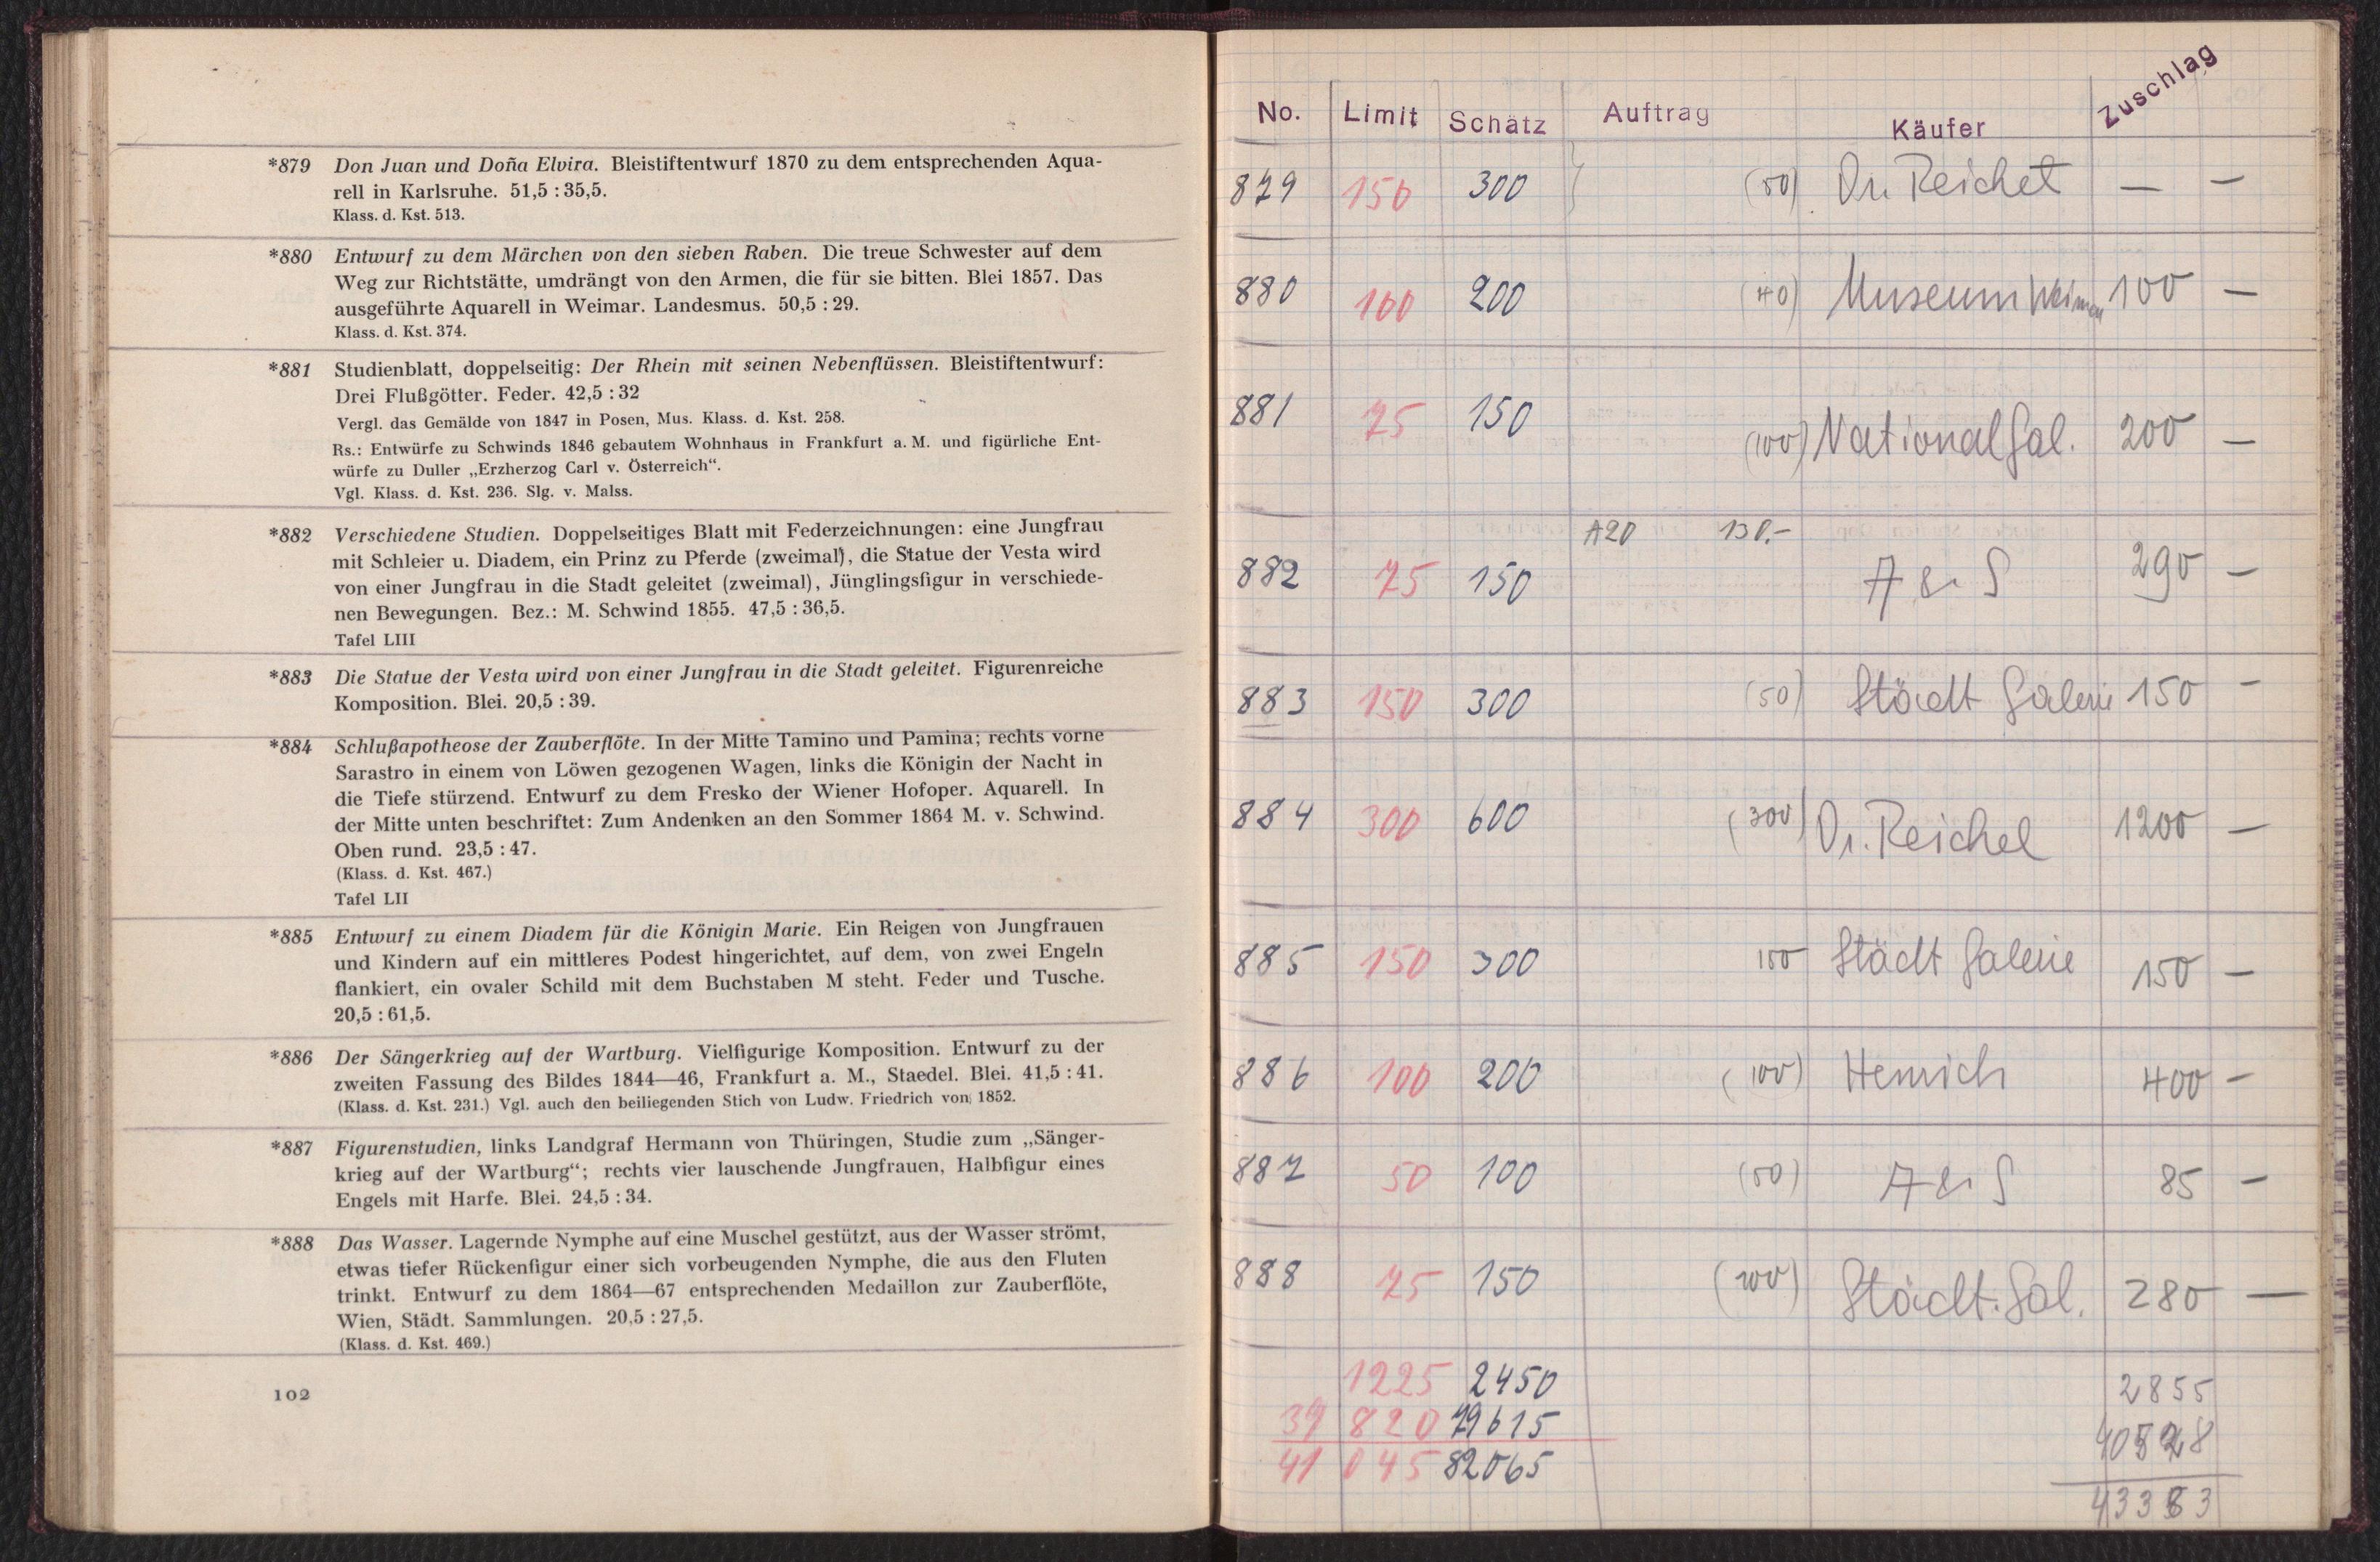 *879 Don Juan und Doña Elvira. Bleistiftentwurf 1870 zu dem entsprechenden Aqua-
rell in Karlsruhe. 51,5 : 35,5.
Klass. d. Kst. 513.
*880 Entwurf zu dem Märchen von den sieben Raben. Die treue Schwester auf dem
Weg zur Richtstätte, umdrängt von den Armen, die für sie bitten. Blei 1857. Das
ausgeführte Aquarell in Weimar. Landesmus. 50,5 : 29.
Klass. d. Kst. 374.
*881 Studienblatt, doppelseitig: Der Rhein mit seinen Nebenflüssen. Bleistiftentwurf:
Drei Flußgötter. Feder. 42,5 : 32
Vergl. das Gemälde von 1847 in Posen, Mus. Klass. d. Kst. 258.
Rs.: Entwürfe zu Schwinds 1846 gebautem Wohnhaus in Frankfurt a. M. und figürliche Ent-
würfe zu Duller „Erzherzog Carl v. Österreich“.
Vgl. Klass. d. Kst. 236. Slg. v. Malss.
*882 Verschiedene Studien. Doppelseitiges Blatt mit Federzeichnungen: eine Jungfrau
mit Schleier u. Diadem, ein Prinz zu Pferde (zweimal), die Statue der Vesta wird
von einer Jungfrau in die Stadt geleitet (zweimal), Jünglingsfigur in verschiede-
nen Bewegungen. Bez.: M. Schwind 1855. 47,5 : 36,5.
Tafel LIII
*883 Die Statue der Vesta wird von einer Jungfrau in die Stadt geleitet. Figurenreiche
Komposition. Blei. 20,5 : 39.
*884 Schlußapotheose der Zauberflöte. In der Mitte Tamino und Pamina; rechts vorne
Sarastro in einem von Löwen gezogenen Wagen, links die Königin der Nacht in
die Tiefe stürzend. Entwurf zu dem Fresko der Wiener Hofoper. Aquarell. In
der Mitte unten beschriftet: Zum Andenken an den Sommer 1864 M. v. Schwind.
Oben rund. 23,5 : 47.
(Klass. d. Kst. 467.)
Tafel LII
*885 Entwurf zu einem Diadem für die Königin Marie. Ein Reigen von Jungfrauen
und Kindern auf ein mittleres Podest hingerichtet, auf dem, von zwei Engeln
flankiert, ein ovaler Schild mit dem Buchstaben M steht. Feder und Tusche.
20,5 : 61,5.
*886 Der Sängerkrieg auf der Wartburg. Vielfigurige Komposition. Entwurf zu der
zweiten Fassung des Bildes 1844—46, Frankfurt a. M., Staedel. Blei. 41,5 : 41.
(Klass. d. Kst. 231.) Vgl. auch den beiliegenden Stich von Ludw. Friedrich von 1852.
*887 Figurenstudien, links Landgraf Hermann von Thüringen, Studie zum „Sänger-
krieg auf der Wartburg“; rechts vier lauschende Jungfrauen, Halbfigur eines
Engels mit Harfe. Blei. 24,5 : 34.
*888 Das Wasser. Lagernde Nymphe auf eine Muschel gestützt, aus der Wasser strömt,
etwas tiefer Rückenfigur einer sich vorbeugenden Nymphe, die aus den Fluten
trinkt. Entwurf zu dem 1864—67 entsprechenden Medaillon zur Zauberflöte,
Wien, Städt. Sammlungen. 20,5 : 27,5.
(Klass. d. Kst. 469.)
102
No. Limit Schätz Auftrag Käufer Zuschlag
879 150 300 (50) Dr. Reichel — —
880 100 200 (40) Museum Weimar 100 —
881 75 150 (100) National Gal. 200 —
A20 130.-
882 75 150 A & S 290 —
883 150 300 (50) Städt Galerie 150 —
884 300 600 (300) Dr. Reichel 1200 —
885 150 300 100 Städt Galerie 150 —
886 100 200 (100) Henrich 400 —
887 50 100 (50) A & S 85 —
888 75 150 (200) Städt. Gal. 280 —
1225 2450 2855
39 820 79615
41 045 82065